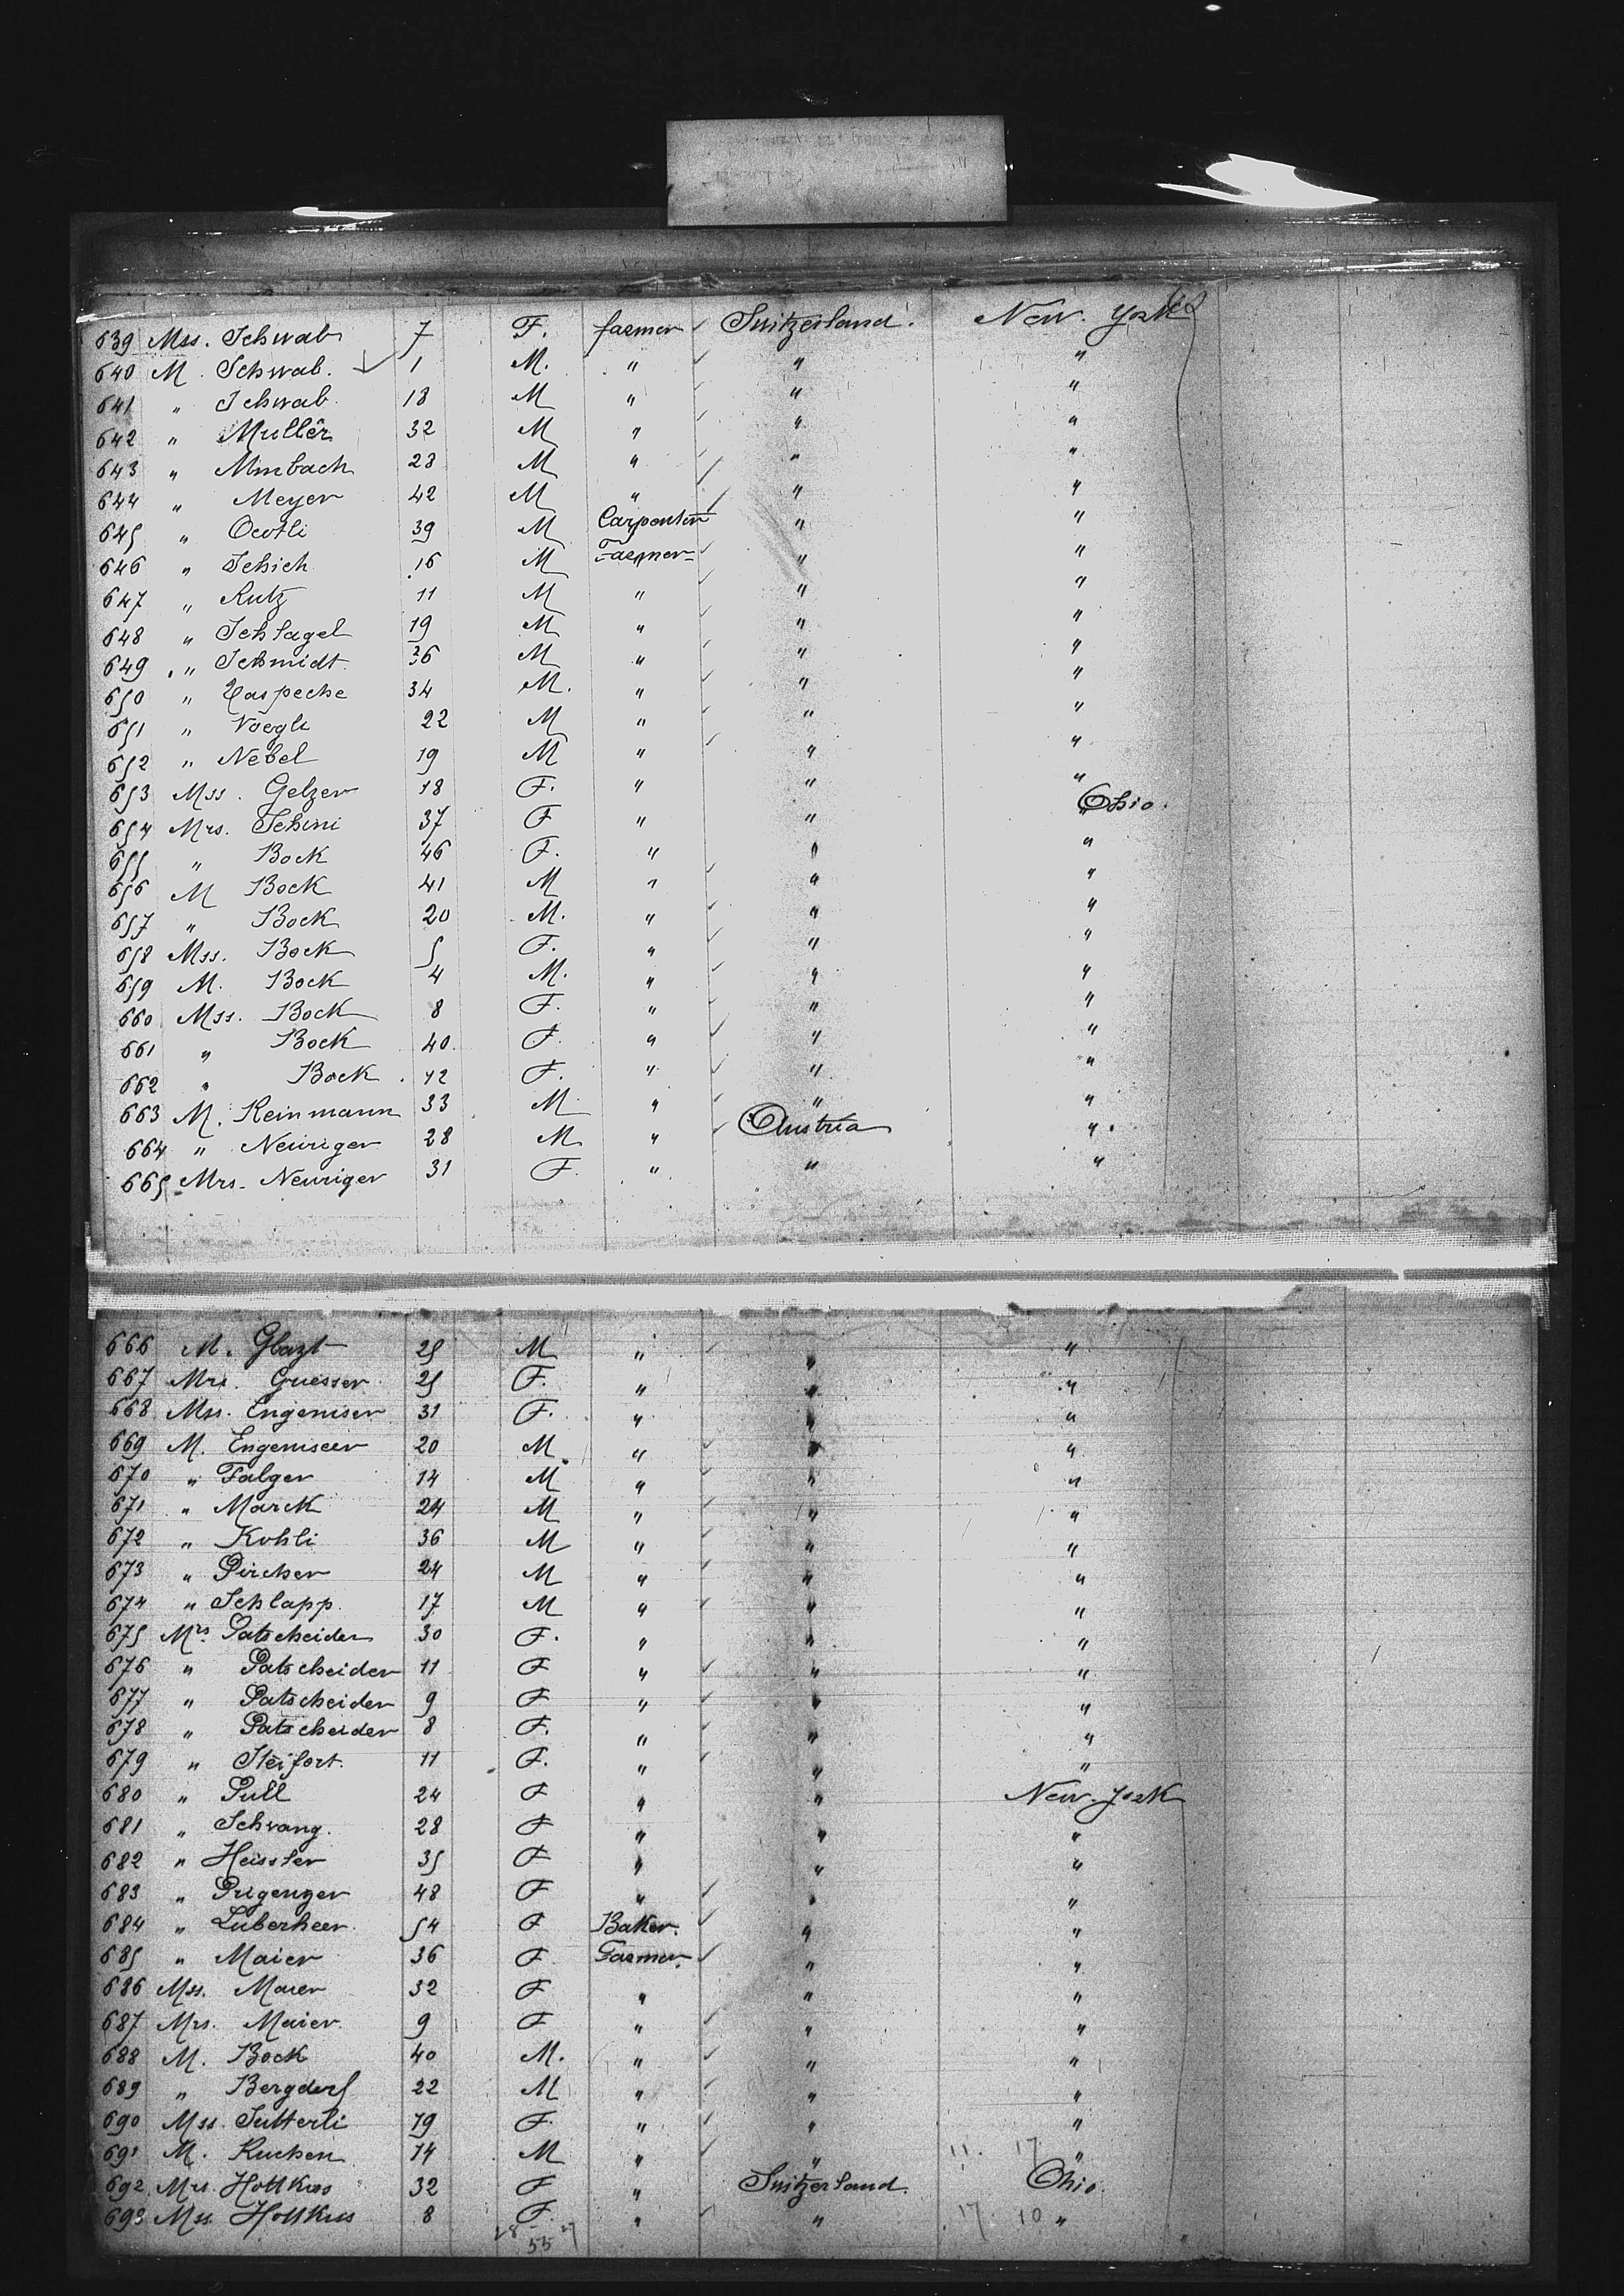 639 Mss. Schwab 7 F. farmer Switzerland. New. York
640 M. Schwab. 1 M. " " "
641 " Schwab 18 M " " "
642 " Muller 32 M " " "
643 " Minbach 28 M " " "
644 " Meyer 42 M " " "
645 " Oertli 39 M Carpenter " "
646 " Schich 16 M Farmer " "
647 " Rutz 11 M " " "
648 " Schlagel 19 M " " "
649 " Schmidt 36 M " " "
650 " 34 M. " " "
651 " Voegli 22 M " " "
652 " Nebel 19 M " " "
653 Mss. Gelzer 18 F. " " "
654 Mrs. Schini 37 F " " Ohio.
655 " Bock 46 F. " " "
656 M Bock 41 M " " "
657 " Bock 20 M. " " "
658 Mss. Bock 5 F. " " "
659 M. Bock 4 M. " " "
660 Mss. Bock 8 F. " " "
661 " Bock 40 F. " " "
662 " Bock 12 F. " " "
663 M. Reinmann 33 M " " "
664 " Neuriger 28 M " Austria "
665 Mrs. Neuriger 31 F. " " "
666 M. Glazt 25 M " " "
667 Mrs. Guesser 25 F. " " "
668 Mss. Engeniser 31 F. " " "
669 M. Engeniseer 20 M. " " "
670 " Falger 14 M " " "
671 " Marck 24 M " " "
672 " Kohli 36 M " " "
673 " Pircher 24 M " " "
674 " Schlapp. 17 M " " "
675 Mrs. Patscheider 30 F. " " "
676 " Patscheider 11 F " " "
677 " Patscheider 9 F " " "
678 " Patscheider 8 F. " " "
679 " Steifort. 11 F. " " "
680 " Pull 24 F " " New. York
681 " Schrang. 28 F " " "
682 " Heissler 35 F " " "
683 " Prigenzer 48 F " " "
684 " Luberheer 54 F Baker. " "
685 " Maier 36 F Farmer. " "
686 Mss. Maier 32 F " " "
687 Mrs. Maier. 9 F " " "
688 M. Bock 40 M. " " "
689 " Bergdorf 22 M " " "
690 Mss. Sutterli 19 F. " " "
691 M. Kuchen 14 M " " 11. 17 "
692 Mrs. Hottkiss 32 F " Switzerland. Ohio.
693 Mss. Hottkiss 8 F. " " 17 10 "
28 27
55